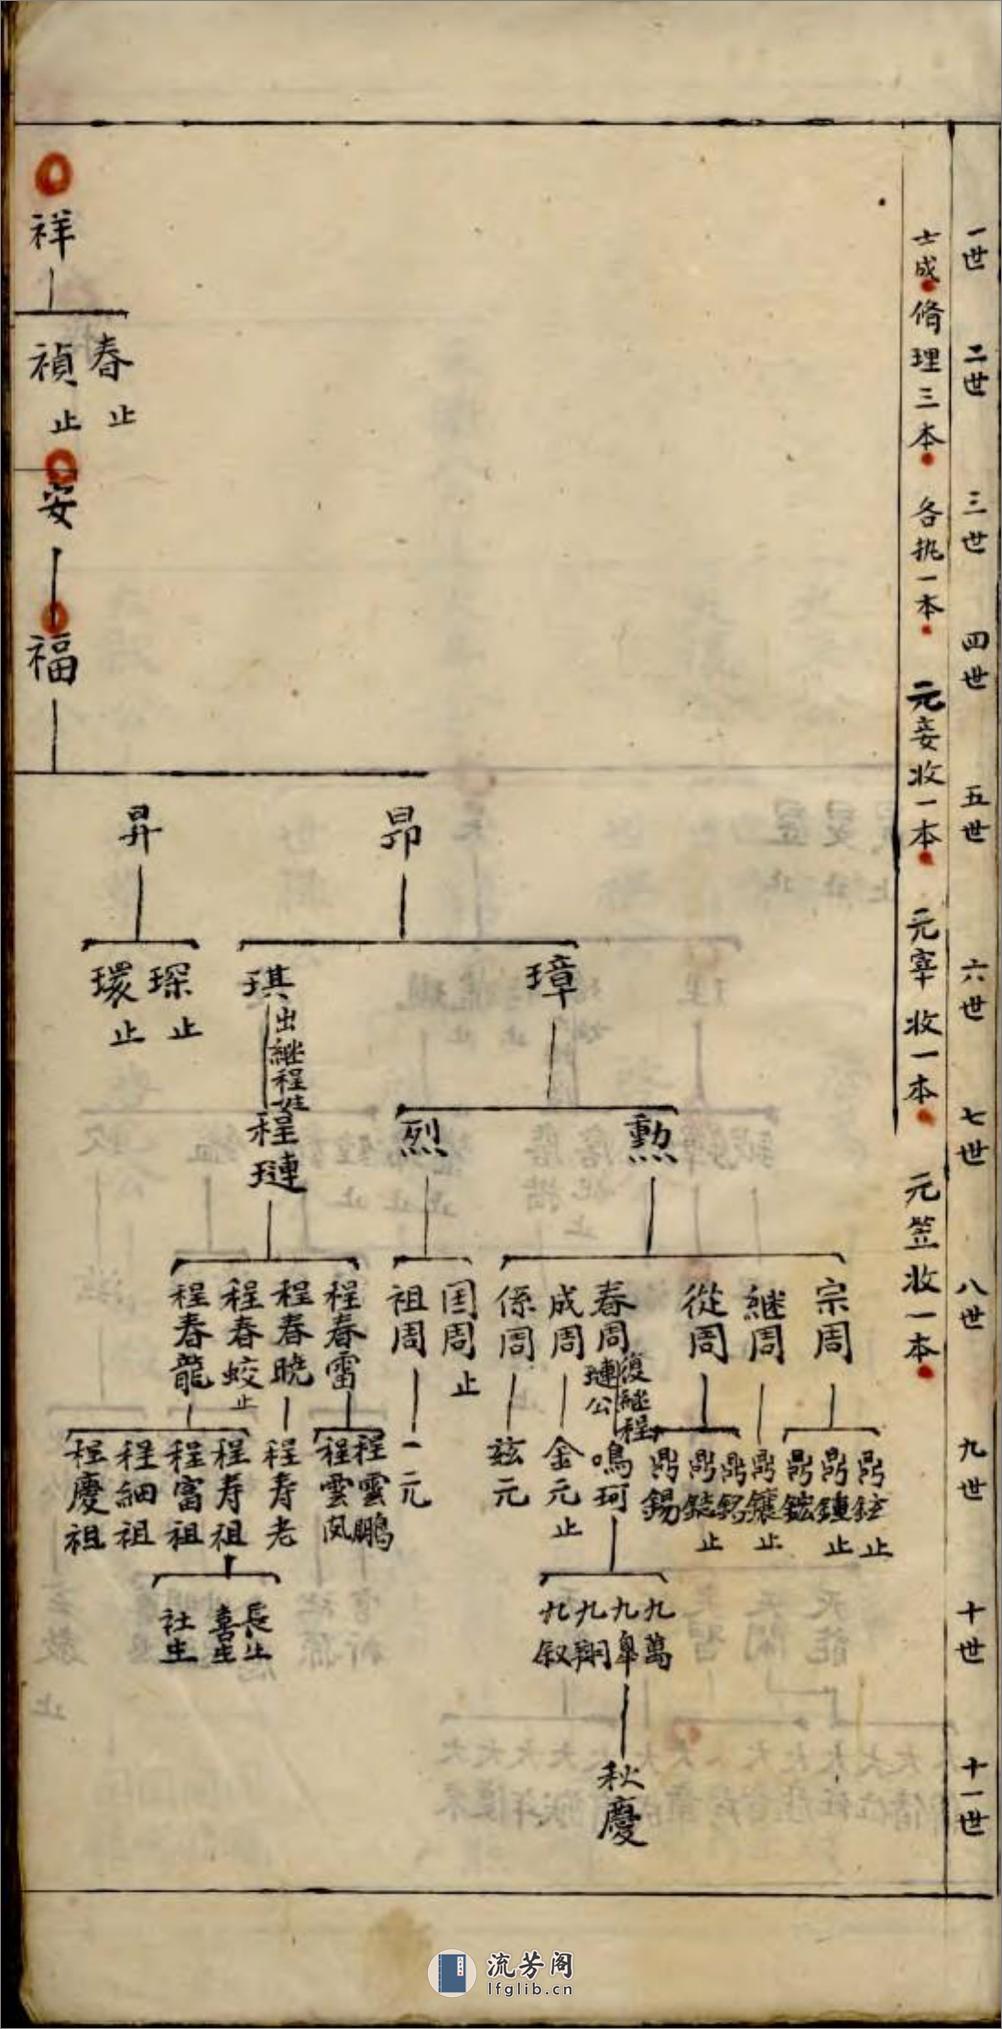 一世
二世
三世
四世
五世
六世
七世
八世
九世
十世
十一世
士成脩理三本
各執一本
元妾收一本
元宰收一本
元笠收一本
祥
春止
禎止
安
福
昂
昇
璋
琪
出繼程姓
琛止
環止
勲
烈
程璉
宗周
繼周
從周
春周
復繼程
璉公
成周
係周
囯周止
祖周
程春雷
程春曉
程春蛟止
程春龍
止
鼎鍾止
鼎鋐
鼎鑲止
鼎銘
止
鼎錫
鳴珂
金元止
兹元
一元
程雲鵬
程雲凤
程寿老
程寿祖
程富祖
程細祖
程慶祖
九萬
九皐
九翔
九叙
長生
喜生
社生
秋慶
流芳阁
lfglib.cn